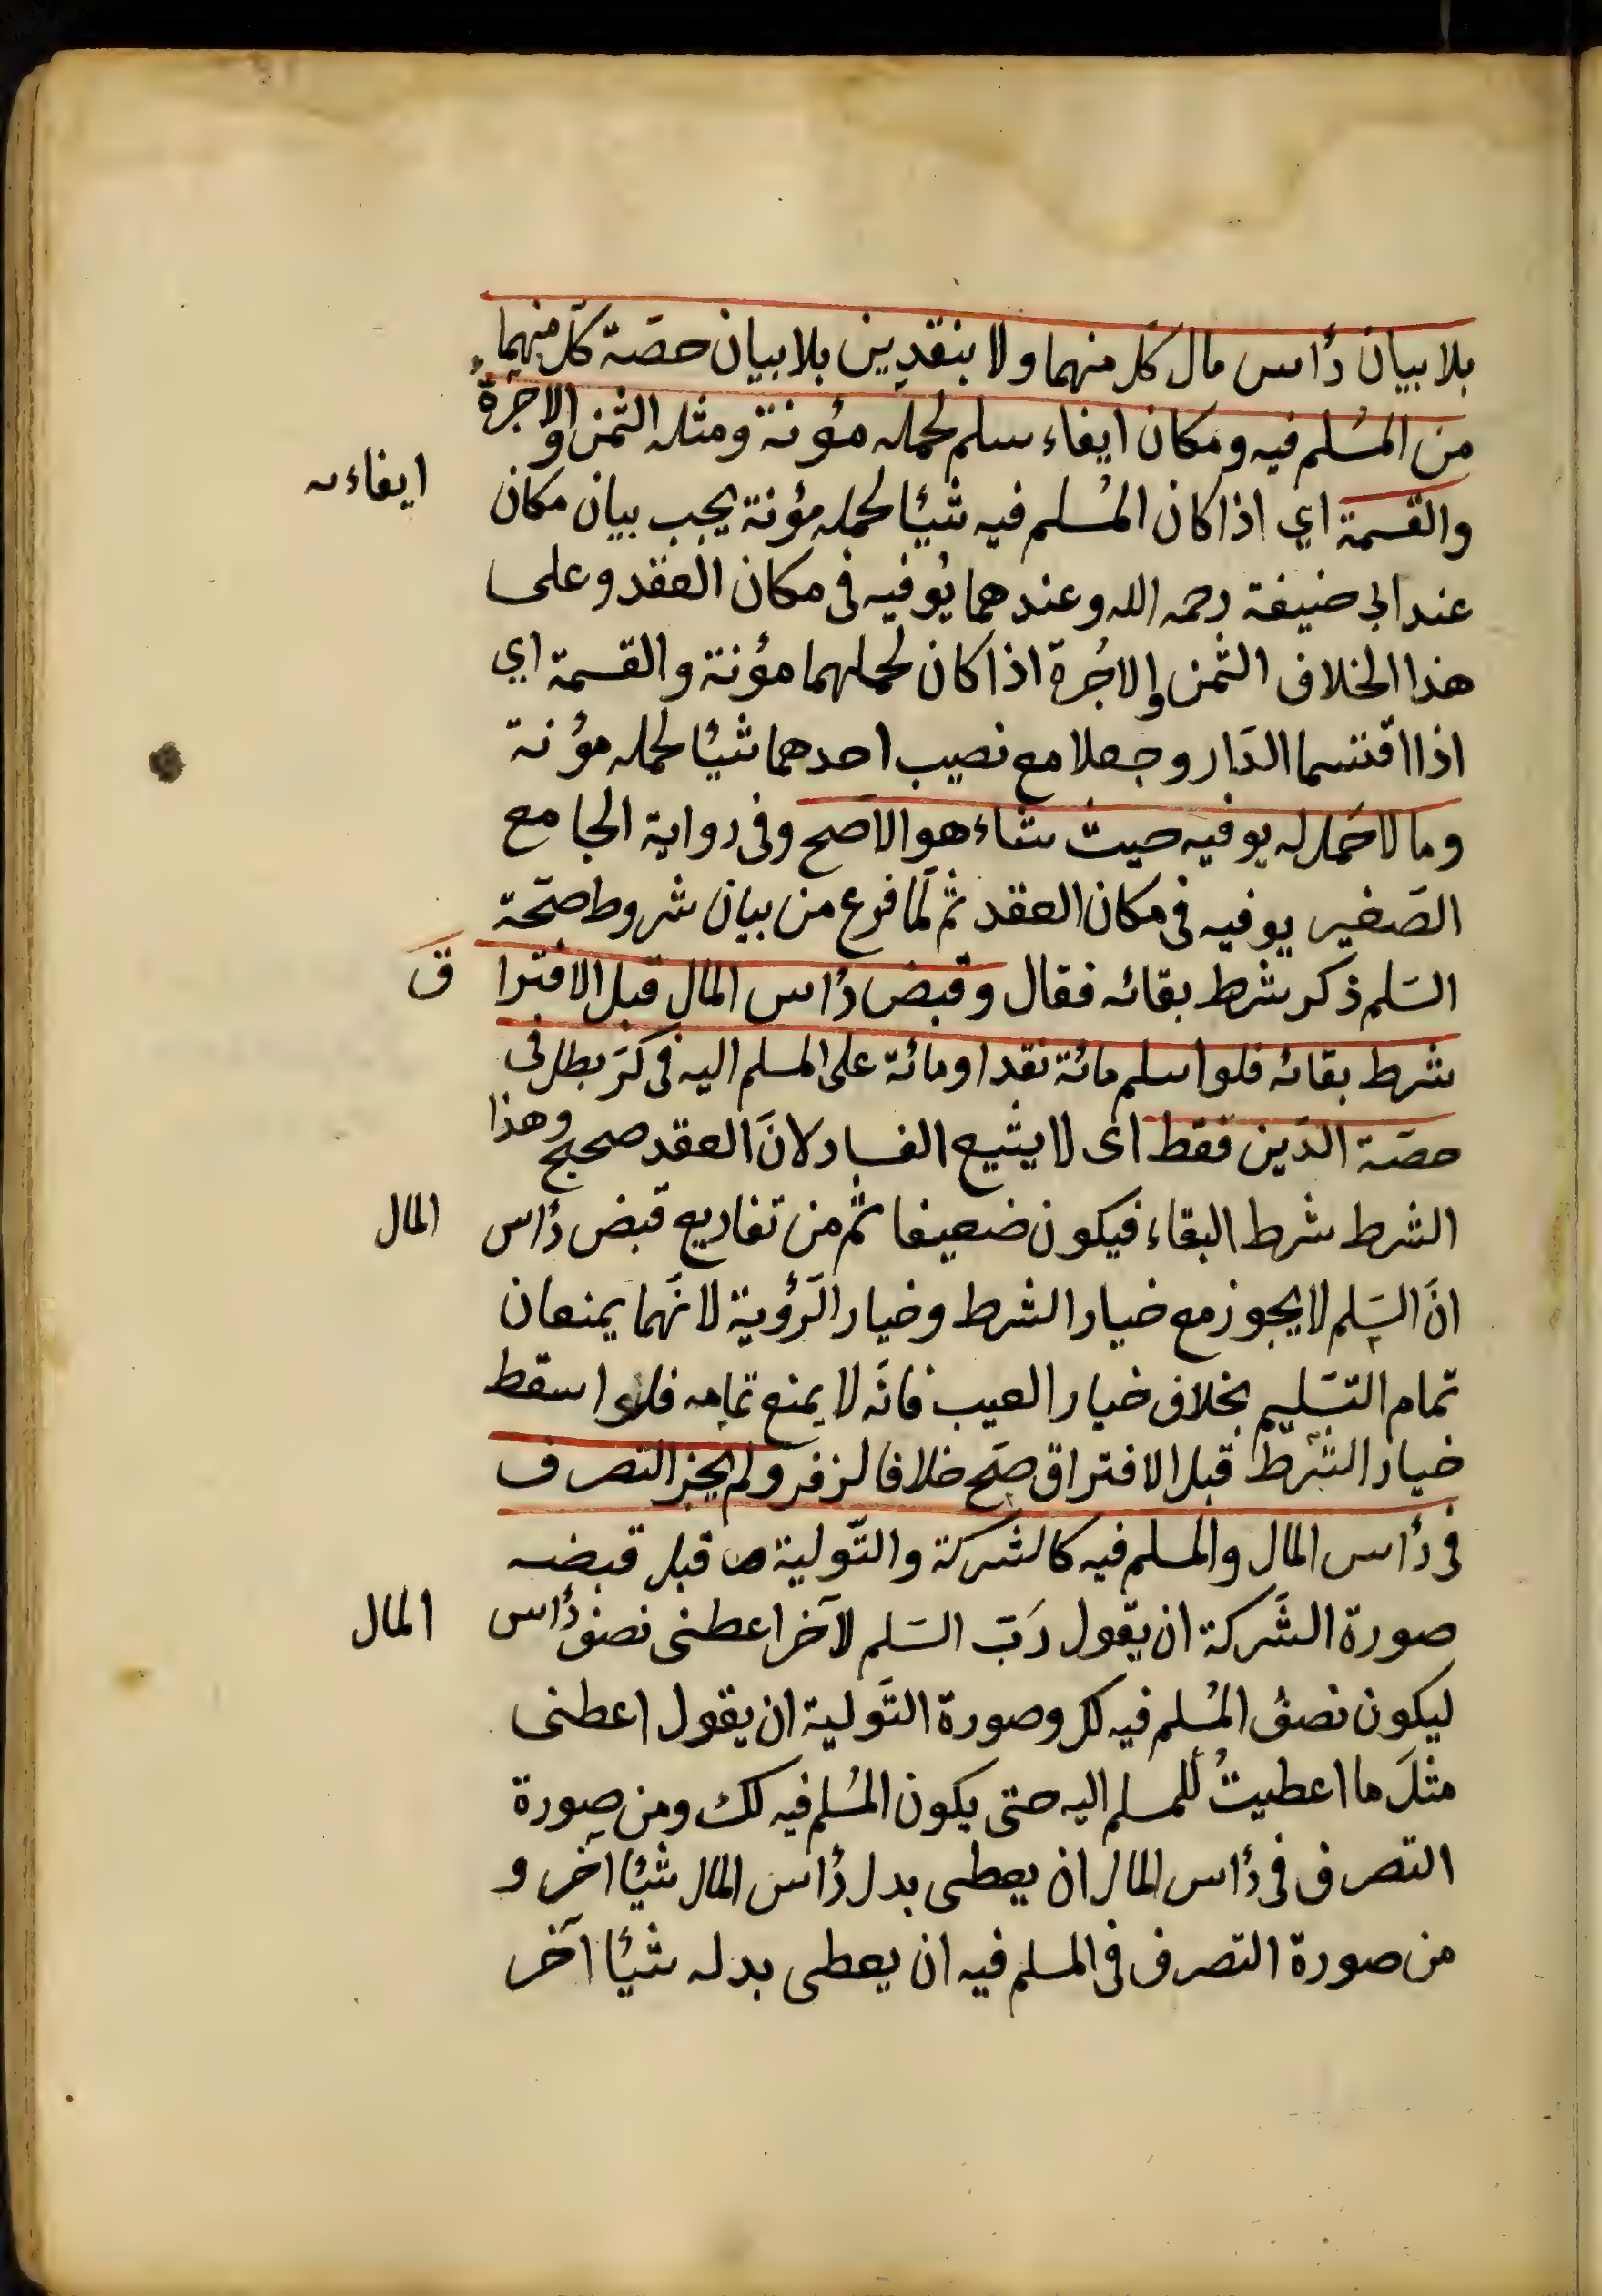 بلا بيان رأس مال كل منهما ولا بنقدين بلا بيان حصّة كلّ منهما
من المُسْلم فيه ومكان ايفاء سلم لحمله مؤنة ومثله الثمن والاجرةُ
والقسمة اي اذا كان المُسلم فيه شيئا لحمله مؤنة يجب بيان مكان ايفاءه
عند ابى حنيفة رحمه الله وعندهما يُوفيه فى مكان العقد وعلى
هذا الخلاف الثمن والاجُرة اذا كان لحملهما مؤنة والقسمة اي
اذا اقتسما الدّار وجعلا مع نصيب احدهما شيئا لحمله مؤنة
وما لا حَمل له يوفيه حيث شاء هو الاصح وفى رواية الجامع
الصّغير يوفيه فى مكان العقد ثم لَمّا فرغ من بيان شروط صحّة
السّلم ذكر شرط بقائه فقال وقبض رأس المال قبل الافتراق
شرط بقائه فلو اسلم مائة نقدا ومائة على المسلم اليه فى كرّ بطل فى
حصّة الدّين فقط اى لا يشيع الفساد لانّ العقد صحيح وهذا
الشرط شرط البقاء فيكون ضعيفا ثم من تفاريع قبض رأس المال
انّ السّلم لا يجوز مع خيار الشرط وخيار الرّؤية لانّهما يمنعان
تمام التسّليم بخلاف خيار العيب فانّه لا يمنع تمامه فلو اسقط
خيار الشّرط قبل الافتراق صحّ خلافا لزفر ولم يجز التصرف
فى رأس المال والمسلم فيه كالشركة والتّولية قبل قبضه
صورة الشّركة ان يقول رَبّ السّلم لآخر اعطنى نصف رأس المال
ليكون نصفُ المُسلم فيه لك وصورة التّولية ان يقول اعطنى
مثلَ ما اعطيتُ للمسلم اليه حتى يكون المُسلم فيه لك ومن صورة
التصرف فى رأس المال ان يعطى بدل رأس المال شيئا آخر و
من صورة التصرف فى المسلم فيه ان يعطى بدله شيئا آخر